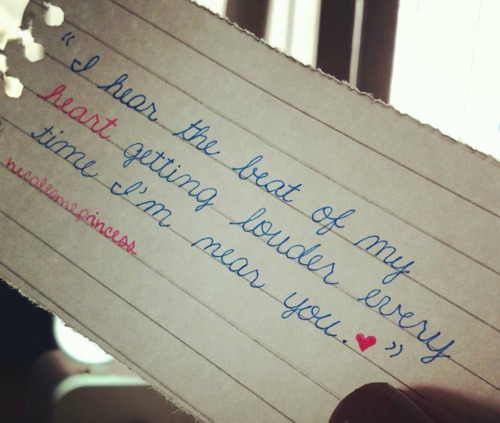 "I hear the beat of my
heart getting louder every
time I'm near you. ♥"
hecallsmeprincess